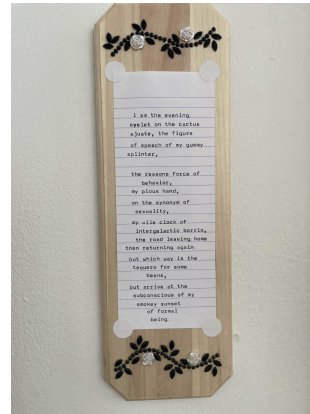 i am the evening
eyelet on the cactus
ajuate, the figure
of speech of my gummy
splinter,
the reasons force of
behavior,
my pious hand,
on the synonym of
sexuality,
my vile clock of
intergalactic barrio,
the road leaving home
then returning again
but which way is the
taquero for some
beans,
but arrive at the
subconscious of my
smokey sunset
of formal
being.